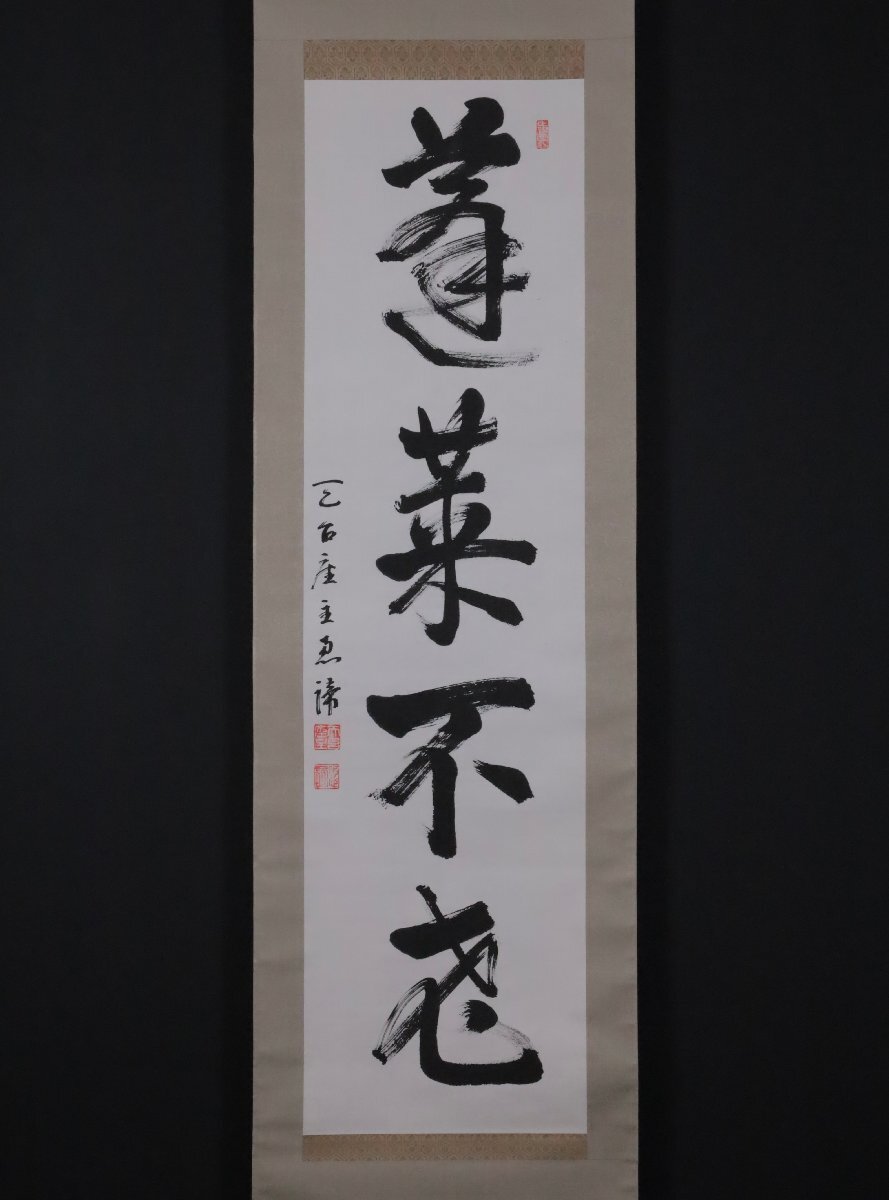 蓬莱不老
天台座主恵諦